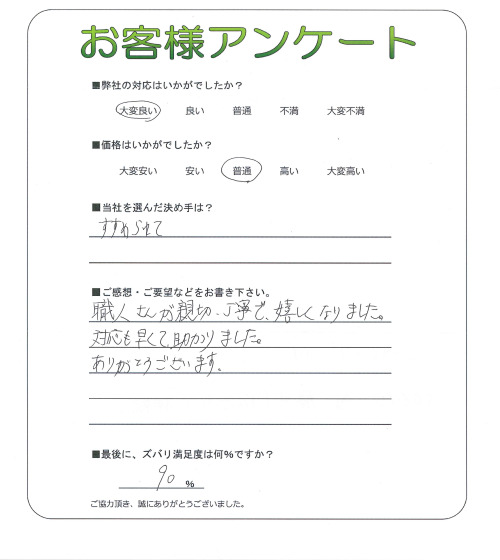 お客様アンケート
■弊社の対応はいかがでしたか？
大変良い 良い 普通 不満 大変不満
■価格はいかがでしたか？
大変安い 安い 普通 高い 大変高い
■当社を選んだ決め手は？
すすめられて
■ご感想・ご要望などをお書き下さい。
職人さんが親切、丁寧で、嬉しくなりました。
対応も早くて助かりました。
ありがとうございます。
■最後に、ズバリ満足度は何%ですか？
90 %
ご協力頂き、誠にありがとうございました。